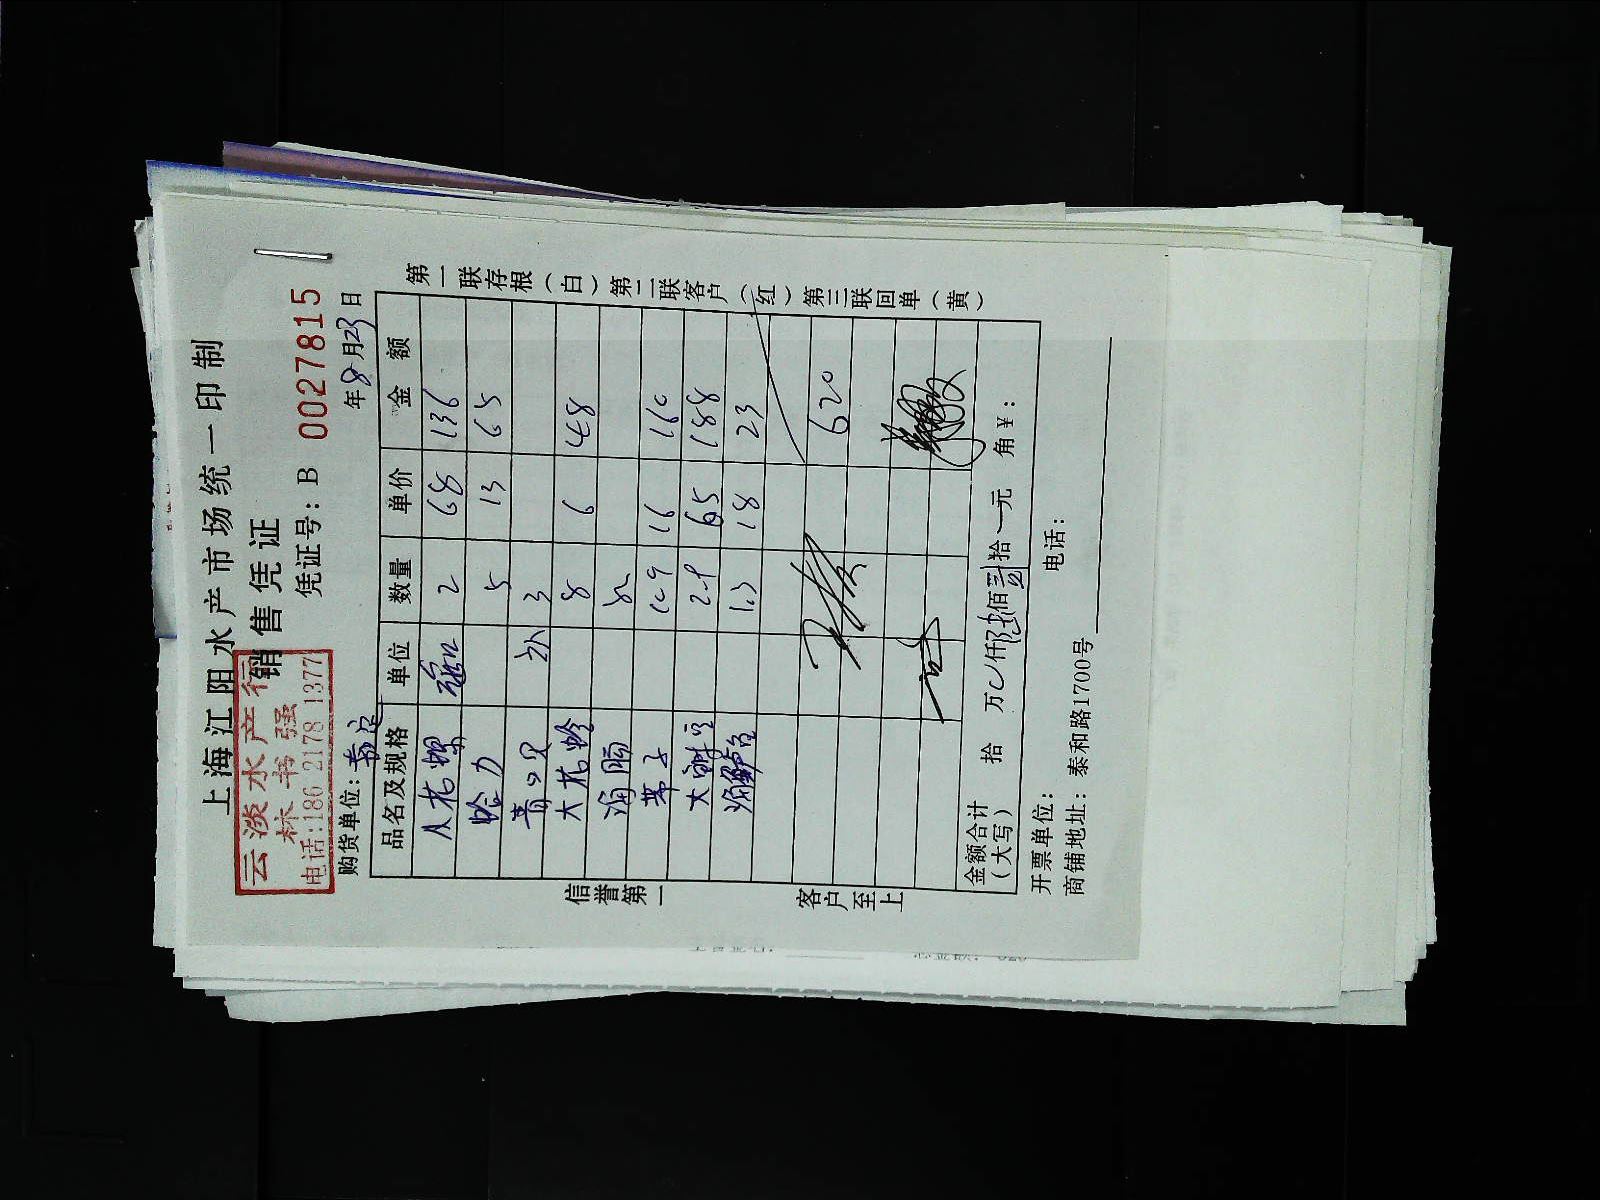 上海江阳水产市场统一印制
销售凭证
云淡水产行
林书强
电话:186 2178 1377
凭证号: B 0027815
购货单位: 嘉定 年8月23日
品名及规格 单位 数量 单价 金额
花螺 2 68 136
蛤力 5 13 65
青口贝 3
大花蛤 8 6 48
海肠
带子 16 160
大 65 188
海鲈鱼 1.3 18 23
620
金额合计(大写) 拾 万 仟陆佰贰拾一元 角¥:
开票单位: 电话:
商铺地址: 泰和路1700号
信誉第一 客户至上
第一联存根(白)第二联客户(红)第三联回单(黄)